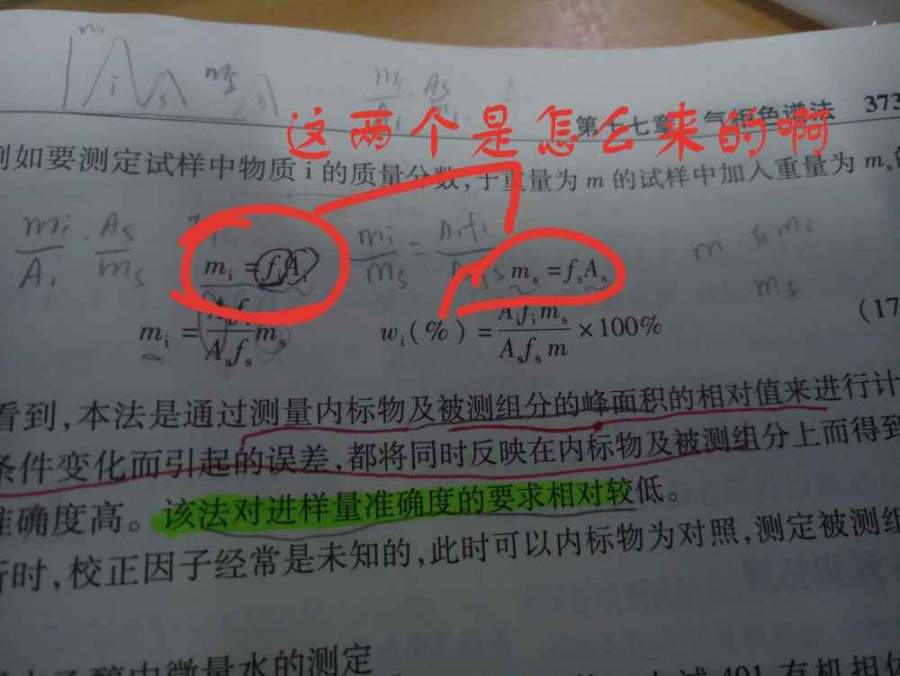 这两个是怎么来的啊
第十七章 气相色谱法 373
例如要测定试样中物质 i 的质量分数,于重量为 m 的试样中加入重量为 mₛ
mᵢ/Aᵢ · Aₛ/mₛ
mᵢ = fᵢAᵢ mₛ = fₛAₛ
mᵢ = Aᵢfᵢ/Aₛfₛ mₛ wᵢ(%) = Aᵢfᵢmₛ/Aₛfₛm ×100% (17
看到,本法是通过测量内标物及被测组分的峰面积的相对值来进行计
条件变化而引起的误差,都将同时反映在内标物及被测组分上而得到
准确度高。该法对进样量准确度的要求相对较低。
行时,校正因子经常是未知的,此时可以内标物为对照,测定被测组
中微量水的测定
401 有机担体